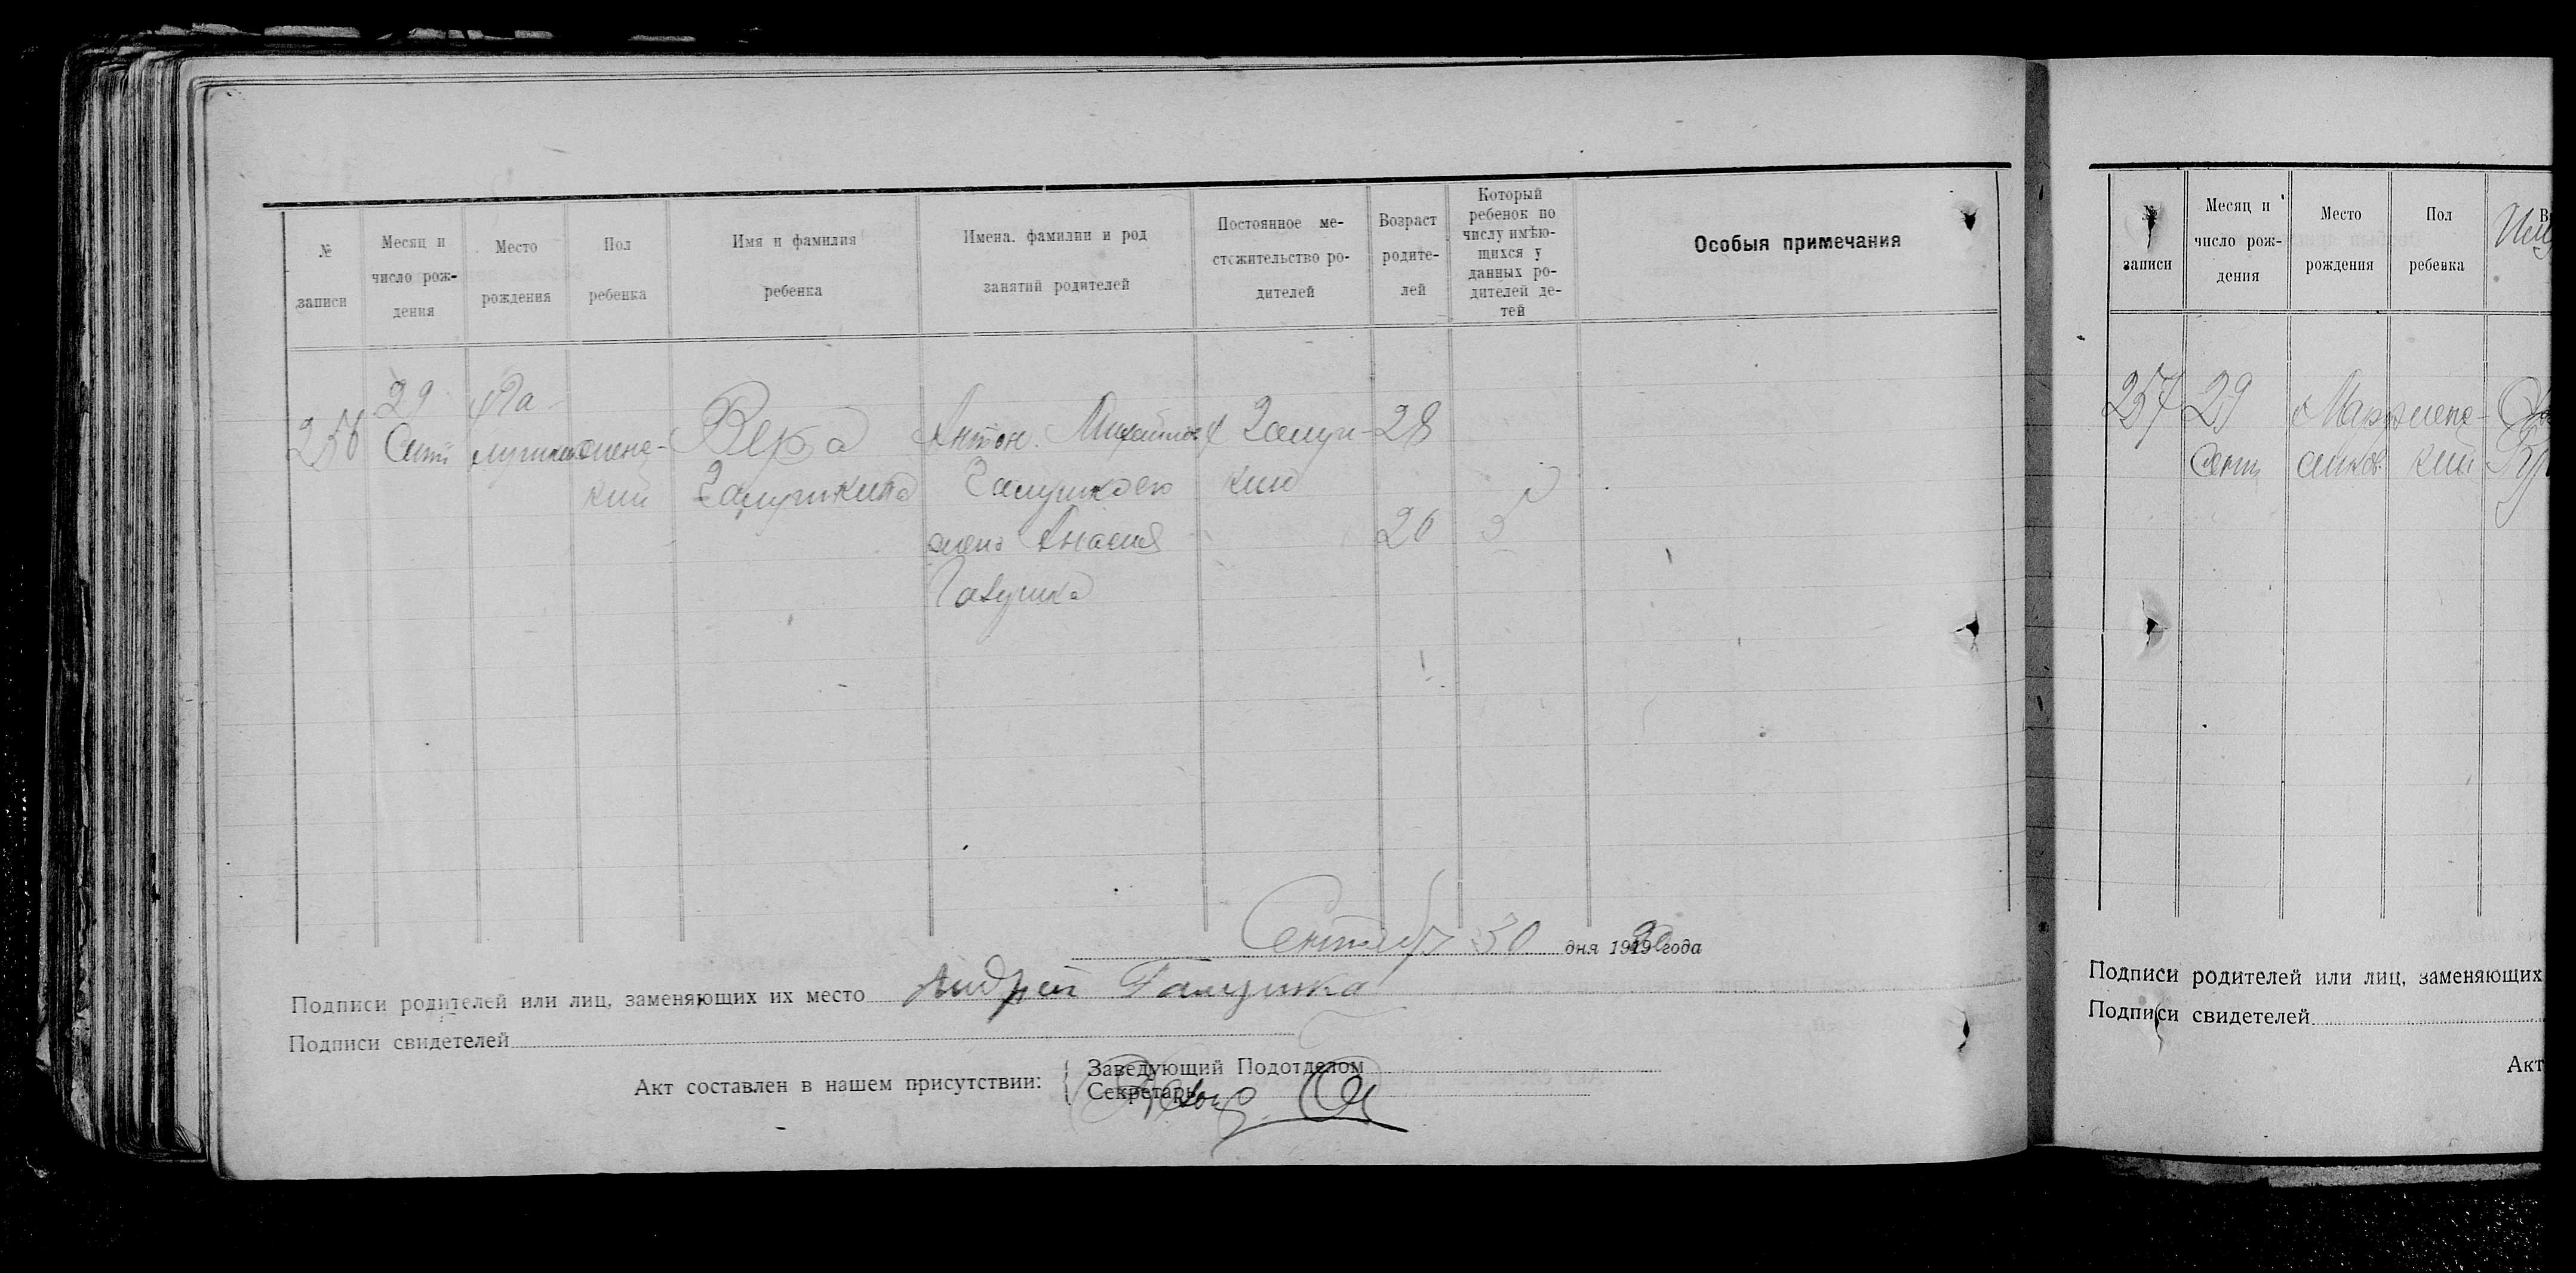 № записи
Месяц и число рождения
Место рождения
Пол ребенка
Имя и фамилия ребенка
Имена. фамилии и род занятий родителей
Постоянное местожительство родителей
Возраст родителей
Который ребенок по числу имѣющихся у данных родителей детей
Особыя примечания
256
29
Сент
женс-
кий
Вера
Галушкина
Антон Михайлов
жена
Галушка
Галуш-
кино
28
26
3
Сентябр 30 дня 1920 года
Подписи родителей или лиц, заменяющих их место Андрей Галушка
Подписи свидетелей
Акт составлен в нашем присутствии:
Заведующий Подотделом
Секретарь
№ записи
Месяц и число рождения
Место рождения
Пол ребенка
257
29
Сент
женс-
кий
Подписи родителей или лиц, заменяющих
Подписи свидетелей
Акт